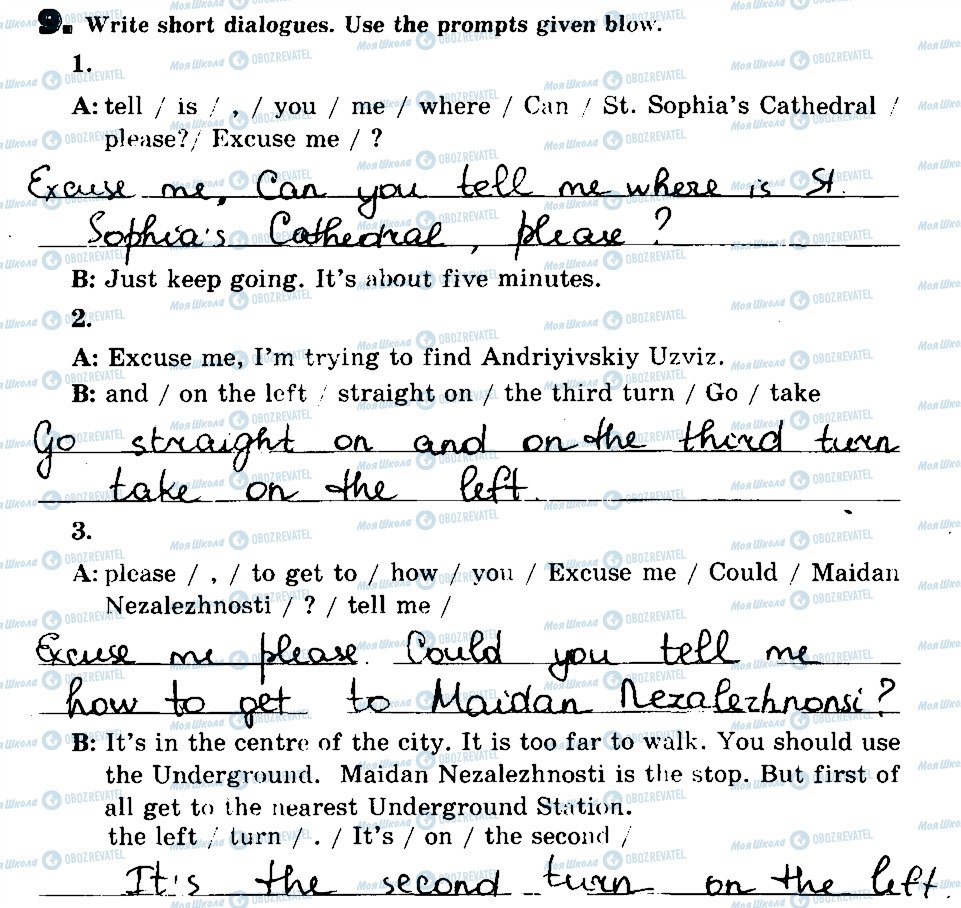 9. Write short dialogues. Use the prompts given blow.
1.
A: tell / is / , / you / me / where / Can / St. Sophia's Cathedral /
please?/ Excuse me / ?
Excuse me, Can you tell me where is St.
Sophia's Cathedral, please?
B: Just keep going. It's about five minutes.
2.
A: Excuse me, I'm trying to find Andriyivskiy Uzviz.
B: and / on the left / straight on / the third turn / Go / take
Go straight on and on the third turn
take on the left.
3.
A: please / , / to get to / how / you / Excuse me / Could / Maidan
Nezalezhnosti / ? / tell me /
Excuse me please. Could you tell me
how to get to Maidan Nezalezhnonsi?
B: It's in the centre of the city. It is too far to walk. You should use
the Underground. Maidan Nezalezhnosti is the stop. But first of
all get to the nearest Underground Station.
the left / turn / . / It's / on / the second /
It's the second turn on the left.
Моя Школа OBOZREVATEL